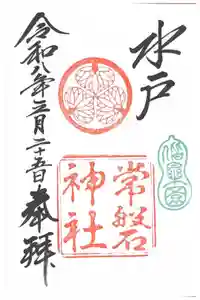 水戸
偕楽園
常磐
神社
令和八年二月二十五日
奉拝